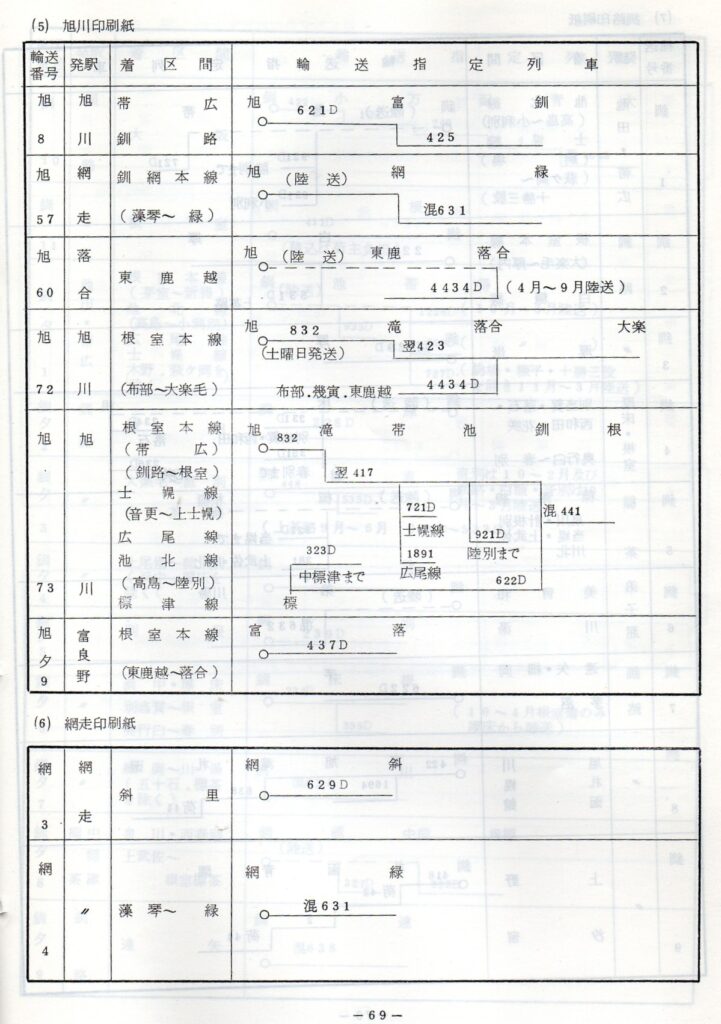 (5) 旭川印刷紙
輸送番号 発駅 着区間 輸送指定列車
旭8 旭川 帯広 釧路 旭 621D 富 釧
425
旭57 網走 釧網本線 (藻琴～緑) 旭 (陸送) 網 緑
混631
旭60 落合 東鹿越 旭 (陸送) 東鹿 落合
4434D (4月～9月陸送)
旭72 旭川 根室本線 (布部～大楽毛) 旭 832 滝 落合 大楽
(土曜日発送) 翌423
布部.幾寅.東鹿越 4434D
旭73 旭川 根室本線 旭 滝 帯 池 釧 根
(帯広) 832
(釧路～根室) 翌417
士幌線
(音更～上士幌) 721D 混441
広尾線 士幌線 921D
池北線 323D 1891 陸別まで
(高島～陸別) 中標津まで 広尾線 622D
標津線 標
旭夕9 富良野 根室本線 (東鹿越～落合) 富 437D 落
(6) 網走印刷紙
網3 網走 斜里 網 629D 斜
網4 〃 藻琴～緑 網 混631 緑
—69—